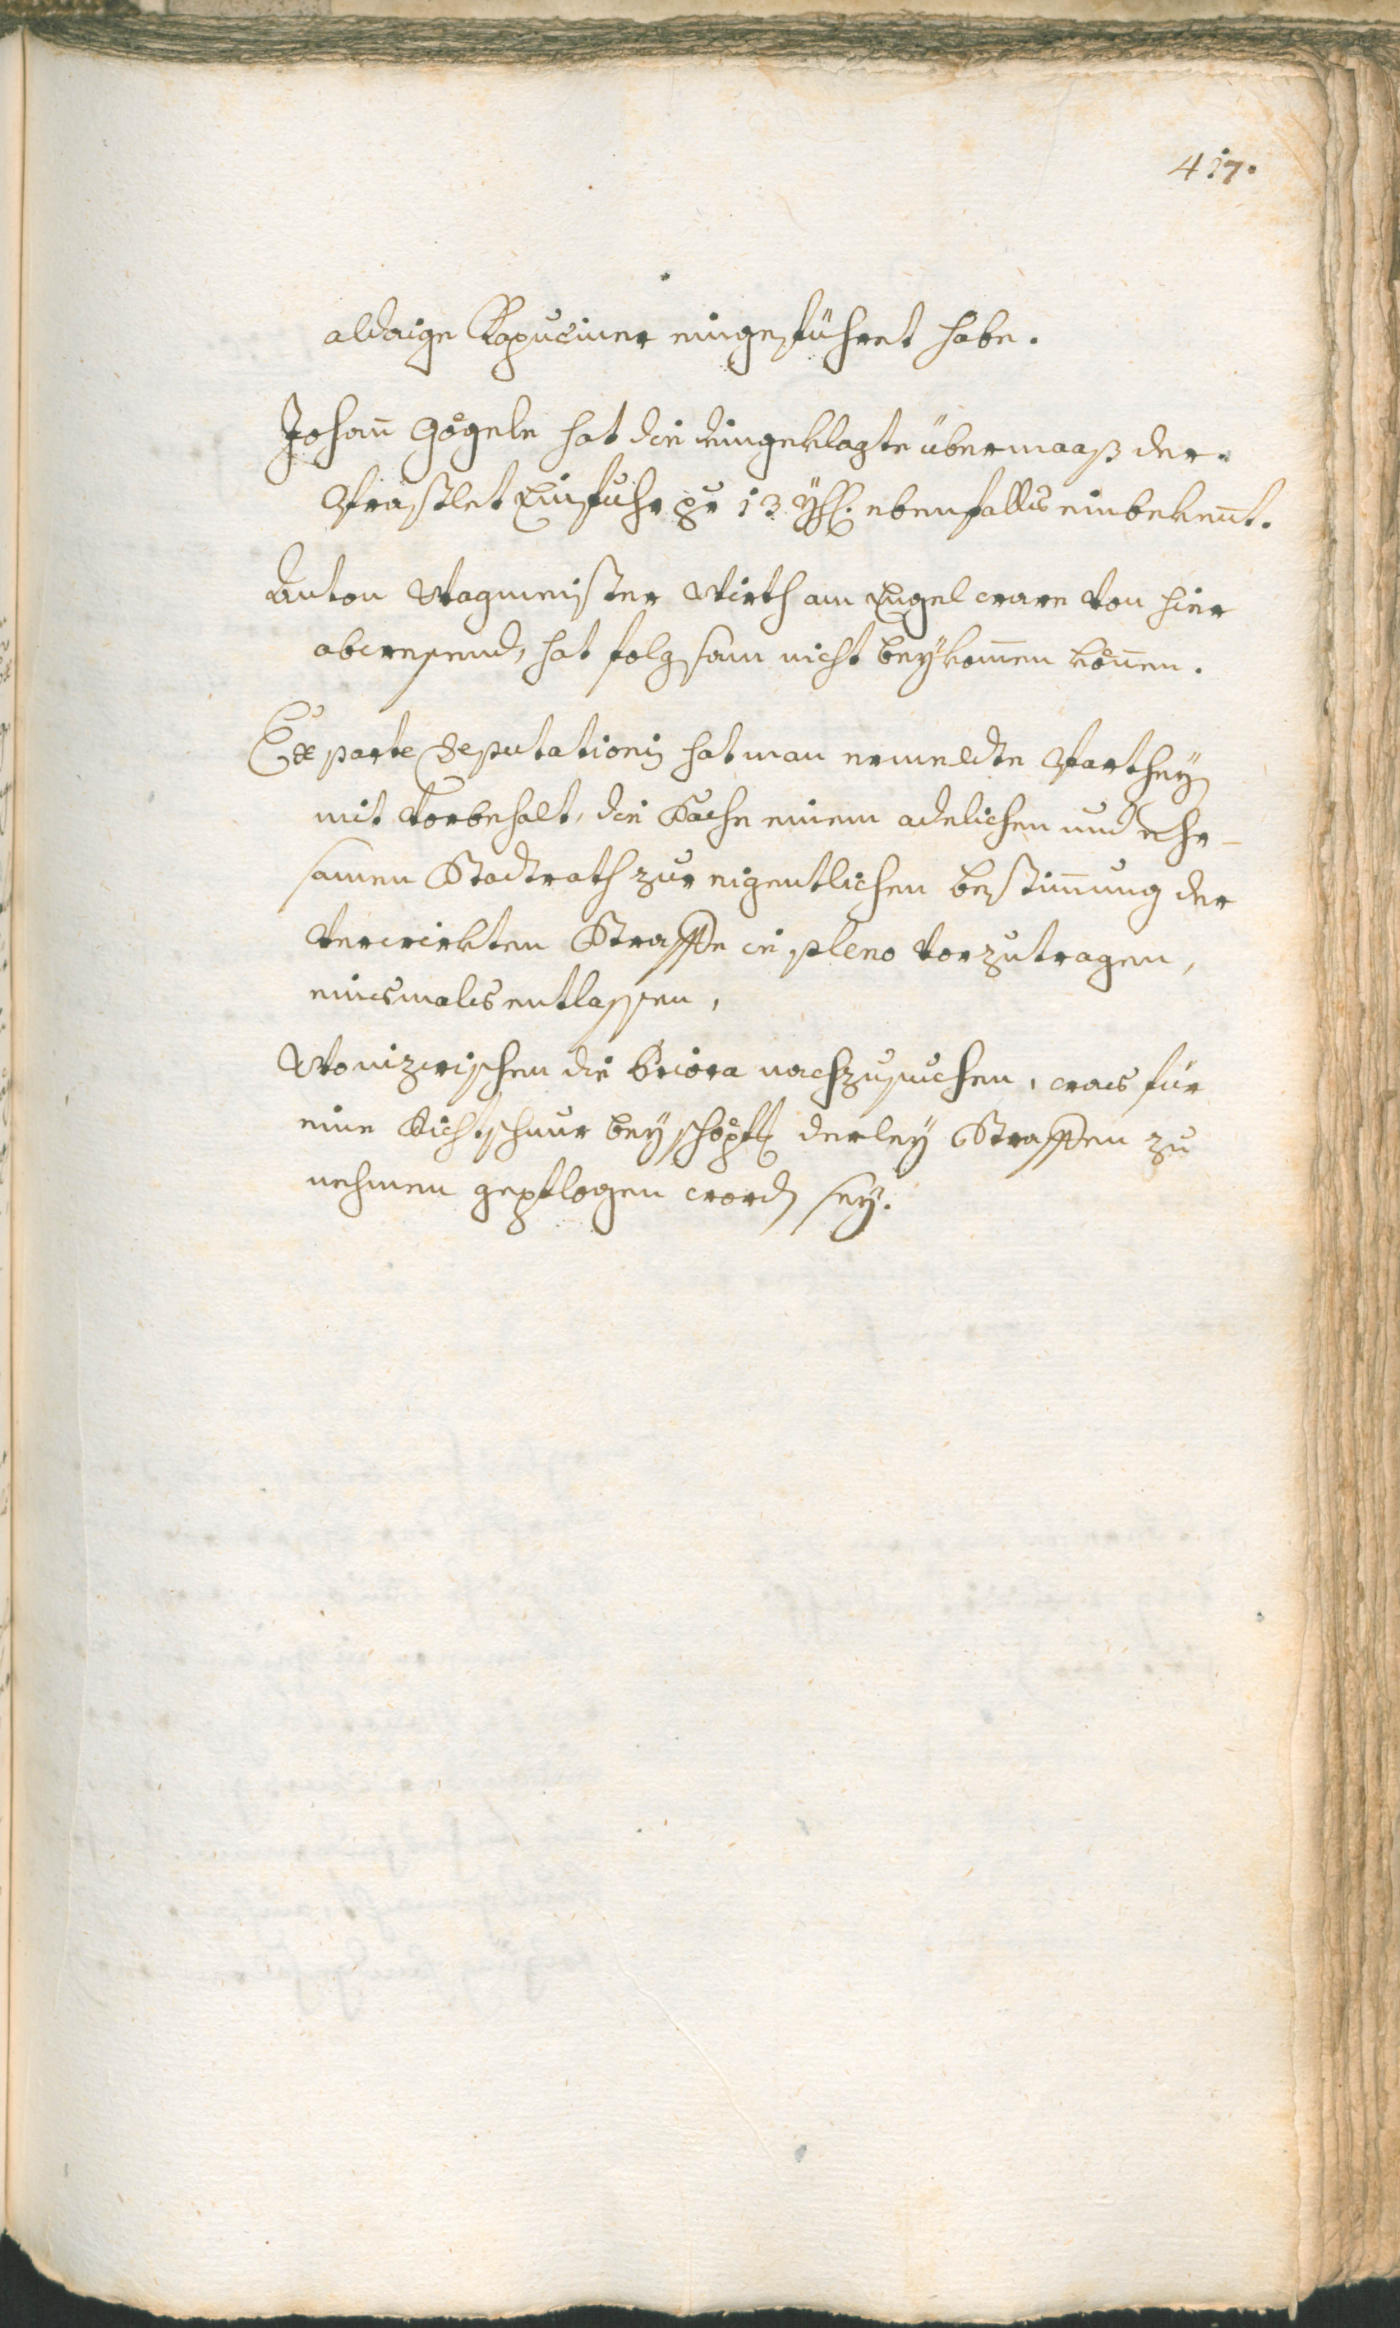 417.
aldaige Kapuciner eingeführet habe.
Johañ Gögele hat die eingeklagte übermaaß der
Praschlet Einfuhr pr 13 Yh. ebenfalls einbekeñt.
Anton Wagmeister Wirth am Engel ware von hier
abwesend, hat folgsam nicht beykom̄en köñen.
Ex parte Deputationis hat man ermeldte Parthey
mit Vorbehalt, die Sache einem adelichen und Ehr-
samen Stadtrath zur eigentlichen bestim̄ung der
verwirkten Straffe in pleno vorzutragen,
einsmals entlassen,
Wonizwischen die Priora nachzusuchen, was für
eine Richtschnur bey schöpf derley Straffen zu
nehmen gepflogen word sey.